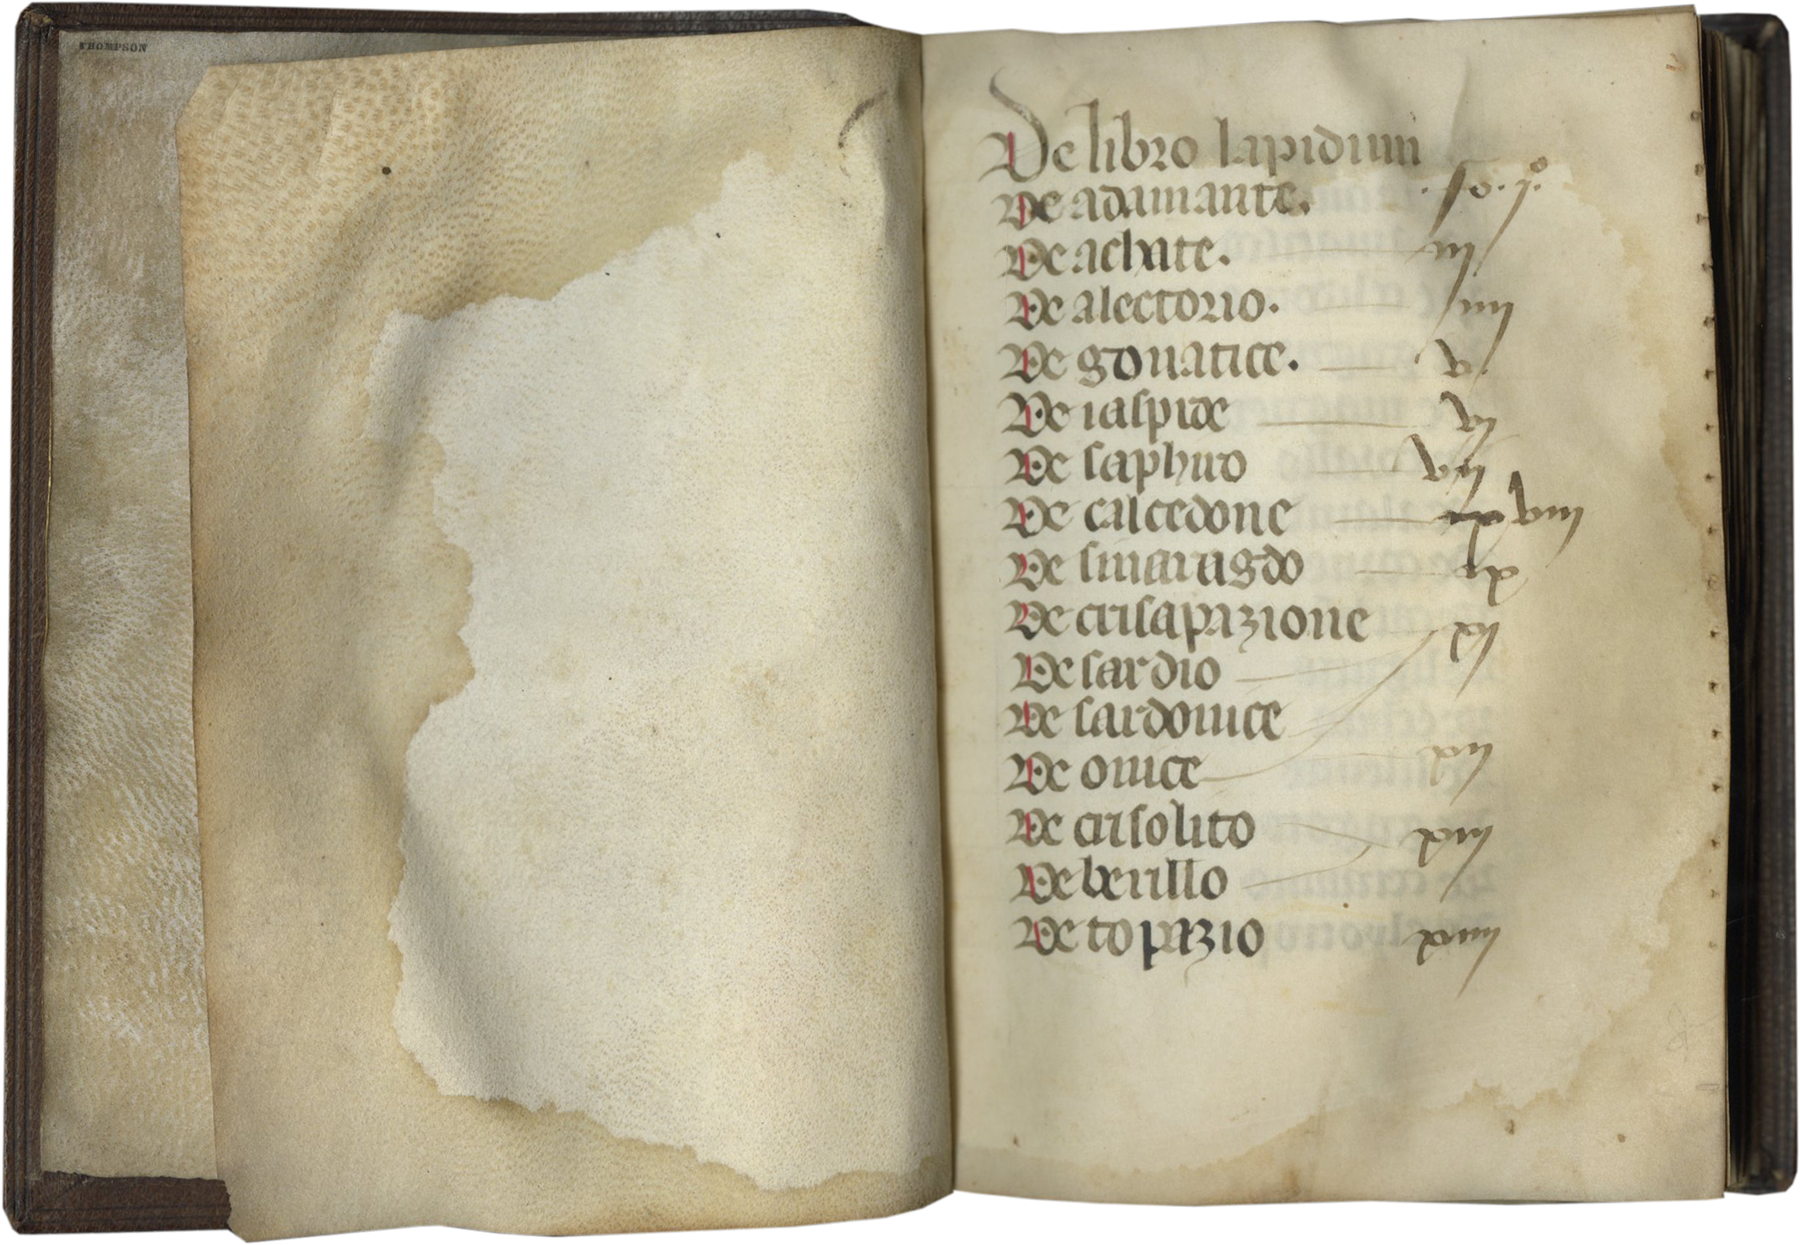 THOMPSON
De libro lapidum
De adamante. .fo. j.º
De achate. iij
De alectorio. iiij
De gonatice. v.
De iaspide vj
De saphiro vij
De calcedone viij
De smaragdo x
De crisapazione
De sardio xj
De sardonice
De onice xij
De crisolito xiij
De berillo
De topazio xiiij